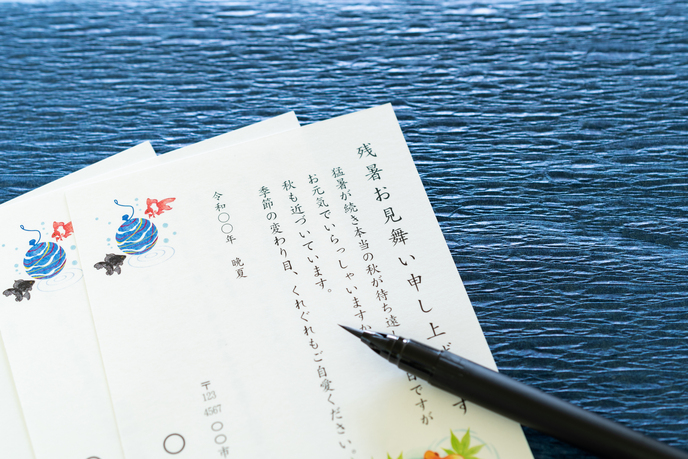 残暑お見舞い申し上す
猛暑が続き本当の秋が待ち遠日ですが
お元気でいらっしゃいますか
秋も近づいています。
季節の変わり目、くれぐれもご自愛ください。
令和〇〇年 晩夏
〒123 4567 〇〇市
〇